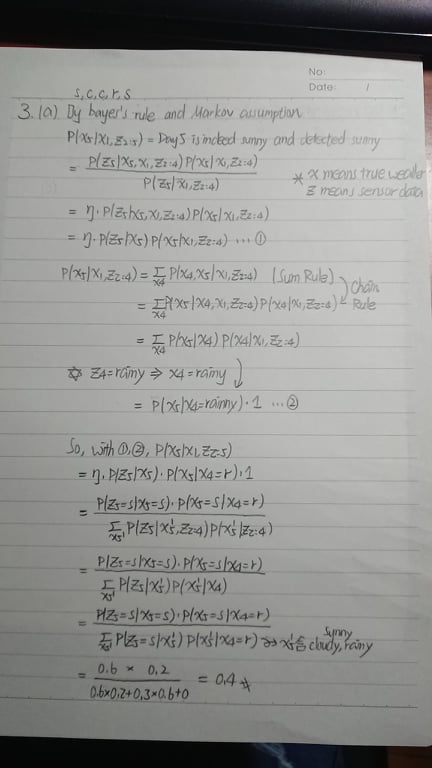 No:
Date: /
s, c, c, r, s
3. (a) By bayer's rule and Markov assumption
P(x5|x1, z2:5) = Day5 is indeed sunny and detected sunny
= P(z5|x5, x1, z2:4) P(x5|x1, z2:4) / P(z5|x1, z2:4)
* x means true weather
z means sensor data
= η · P(z5|x5, x1, z2:4) P(x5|x1, z2:4)
= η · P(z5|x5) P(x5|x1, z2:4) ··· ①
P(x5|x1, z2:4) = Σx4 P(x4, x5|x1, z2:4) (Sum Rule)
= Σx4 P(x5|x4, x1, z2:4) P(x4|x1, z2:4) Chain Rule
= Σx4 P(x5|x4) P(x4|x1, z2:4)
☆ z4 = rainy ⇒ x4 = rainy
= P(x5|x4=rainny) · 1 ··· ②
So, with ①, ②, P(x5|x1, z2:5)
= η · P(z5|x5) · P(x5|x4=r) · 1
= P(z5=s|x5=s) · P(x5=s|x4=r) / Σx5' P(z5|x5', z2:4) P(x5'|z2:4)
= P(z5=s|x5=s) · P(x5=s|x4=r) / Σx5' P(z5|x5') P(x5'|x4)
= P(z5=s|x5=s) · P(x5=s|x4=r) / Σx5' P(z5=s|x5') P(x5'|x4=r) x5' 含 sunny cloudy, rainy
= 0.6 × 0.2 / 0.6×0.2+0.3×0.6+0 = 0.4 #